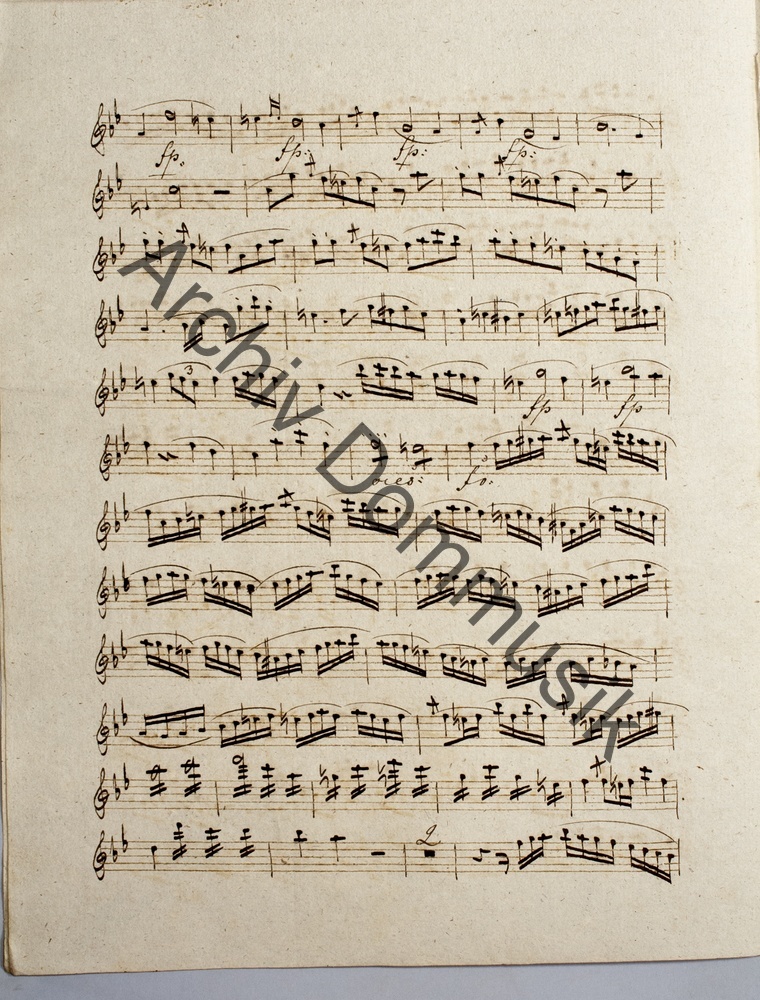 fp: fp: fp: fp:
3
fp fp
cres: fo:
2
Archiv Dommusik